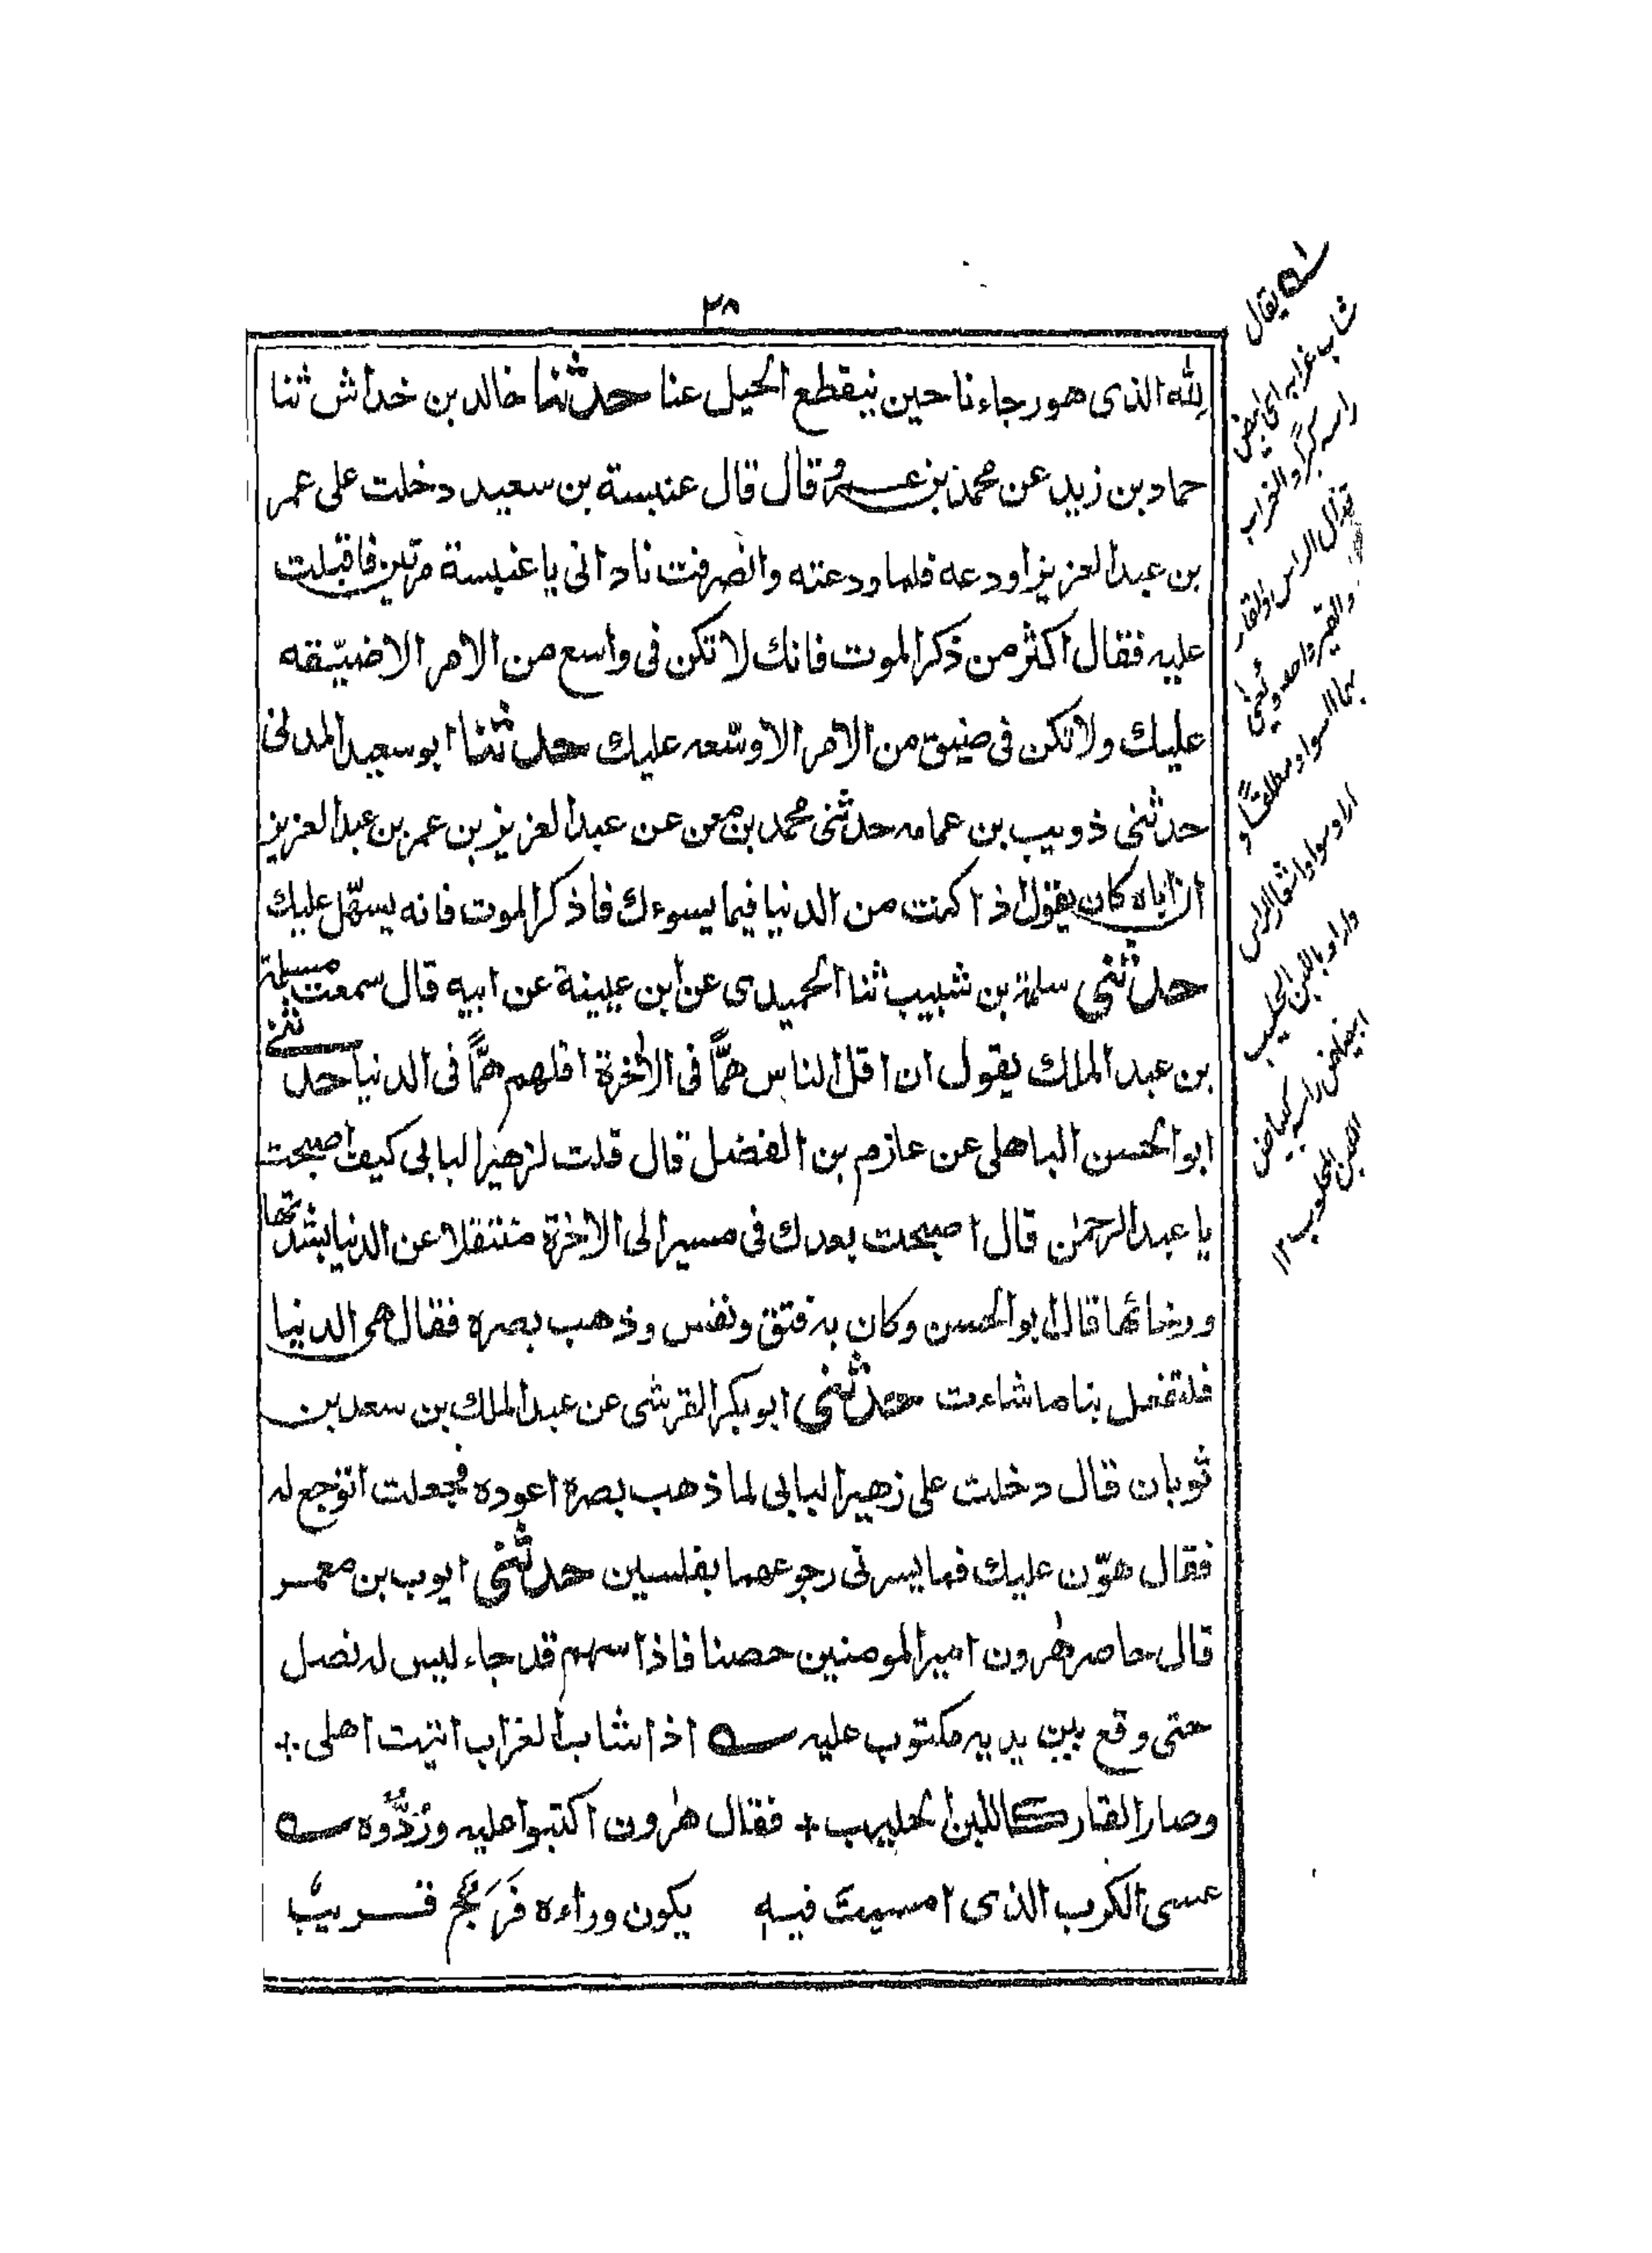 ٢٨
لله الذى هو رجاءنا حين ينقطع الحيل عنا حدثنا خالد بن خداش ثنا
حماد بن زيد عن محمد بن عمرو قال قال عنبسة بن سعيد دخلت على عمر
بن عبد العزيز اودعه فلما ودعته وانصرفت نادانى يا عنبسة مرتين فاقبلت
عليه فقال اكثر من ذكر الموت فانك لا تكن فى واسع من الامر الا ضيّقه
عليك ولا تكن فى ضيق من الامر الا وسّعه عليك حدثنا ابو سعيد المدنى
حدثنى ذويب بن عمامه حدثنى محمد بن معن عن عبد العزيز بن عمر بن عبد العزيز
ان اباه كان يقول اذا كنت من الدنيا فيما يسوءك فاذكر الموت فانه يسهّل عليك
حدثنى سلمة بن شبيب ثنا الحميدى عن ابن عيينة عن ابيه قال سمعت مسلمة
بن عبد الملك يقول ان اقل الناس همًّا فى الاخرة اقلهم همًّا فى الدنيا حدثنى
ابو الحسن الباهلى عن عازم بن الفضل قال قلت لزهير البابى كيف اصبحت
يا عبد الرحمٰن قال اصبحت بعدك فى مسير الى الاخرة متنقلا عن الدنيا بشدتها
ورخائها قال ابو الحسن وكان به فتق ونفس وذهب بصره فقال هى الدنيا
فلتفعل بنا ما شاءت حدثنى ابو بكر القرشى عن عبد الملك بن سعد بن
ثوبان قال دخلت على زهير البابى لما ذهب بصره اعوده فجعلت اتوجع له
فقال هوّن عليك فما يسرنى رجوعهما بفلسين حدثنى ايوب بن معمر
قال حاصر هٰرون امير المومنين حصنا فاذا سهم قد جاء ليس له نصل
حتى وقع بين يديه مكتوب عليه ــه اذا شاب الغراب اتيت اهلى +
وصار القار كاللبن الحليب + فقال هٰرون اكتبوا عليه ورُدُّوه ــه
عسى الكرب الذى امسيتَ فيهِ يكون وراءه فَرَجٌ قريبٌ
له يقال
شاب غرابه اى ابيض
راسه كبرًا والغراب
قذال الراس والقار
والقير واحد ويُعنى
بهما السواد مطلقًا و
اراد سواد شعار الراس
واراد باللبن الحليب
ابيضاض راسه كبياض
اللبن الحلوب ١٢